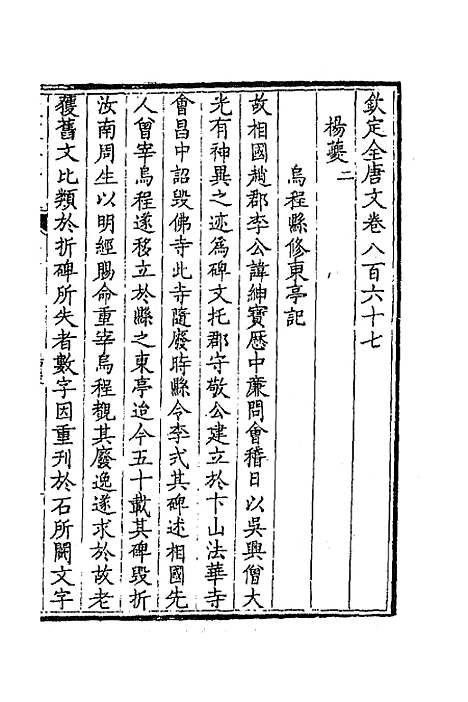 欽定全唐文卷八百六十七
楊夔二
烏程縣修東亭記
故相國趙郡李公諱紳寶厯中廉問會稽日以吳興僧大
光有神異之迹爲碑文托郡守敬公建立於卞山法華寺
會昌中詔毀佛寺此寺隨廢時縣令李式其碑述相國先
人曾宰烏程遂移立於縣之東亭迨今五十載其碑毀折
汝南周生以明經賜命重宰烏程覩其廢逸遂求於故老
獲舊文比類於折碑所失者數字因重刊於石所闕文字